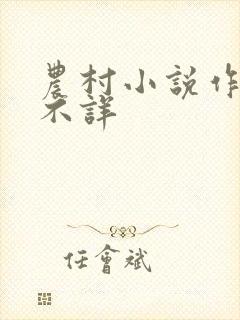 農村小說作
不詳
任會斌